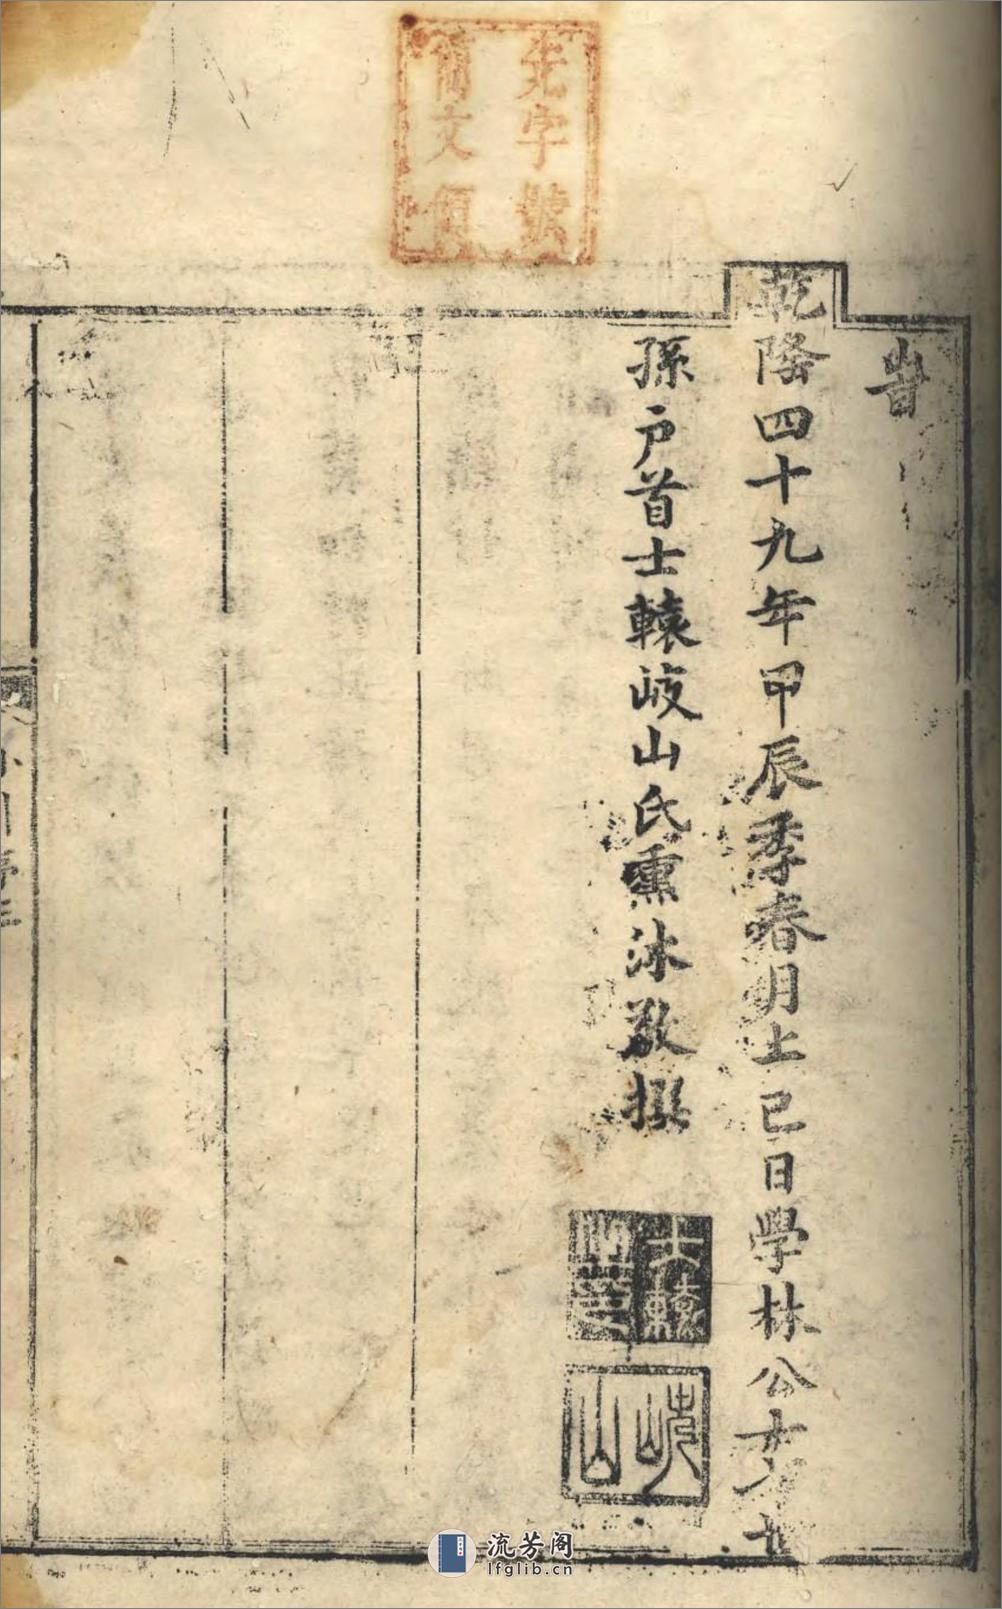 先字號
文
旹
乾隆四十九年甲辰季春月上巳日學林公十
孫戶首士轅岐山氏熏沐敬撰
士轅
岐山
流芳阁
lfglib.cn